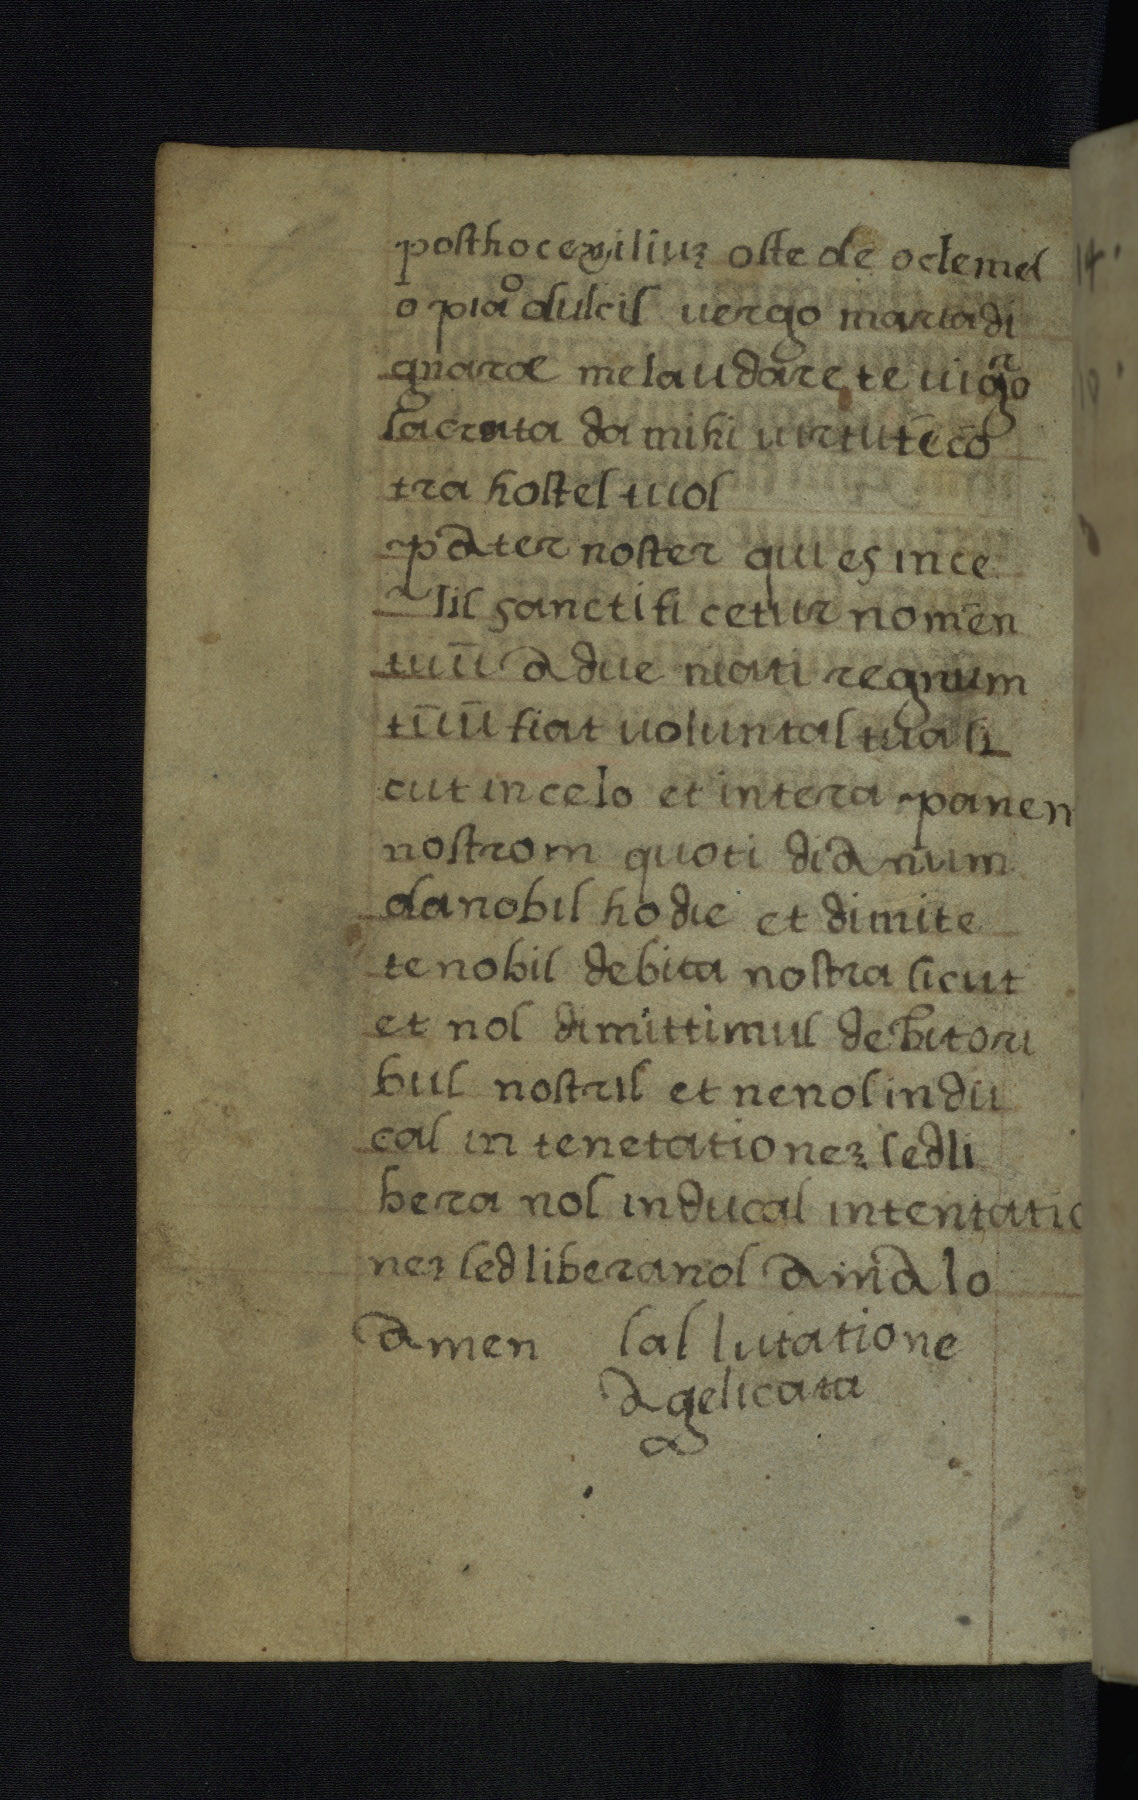 posthocexiliuz oste de oclemes
o piaº dulcis uergo mariadi
gnarae melaudare te uigͬo
sacrata da mihi uirtutēcō
tra hostes tuos
pater noster qui es ince
liis sanctifi cetur nomēn
tuū̄ adue niati regnum
tūū fiat uoluntas tua si
cut incelo et intera panen
nostrom quoti dianum
danobis hodie et dimite
tenobis debita nostra sicut
et nos dimittimus debitori
bus nostris et nenosindu
cas in tenetationez sedli
bera nos inducas intentatio
nez sedliberanos amalo
amen sal lutatione
agelicata